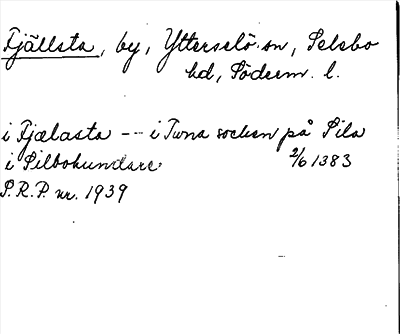 Fjällsta, by, Ytterselö sn, Selebo
hd, Söderm. l.
i Fjælasta -- i Tuna socken på Sila
i Silbohundare 2/6 1383
S.R.P. nr. 1939